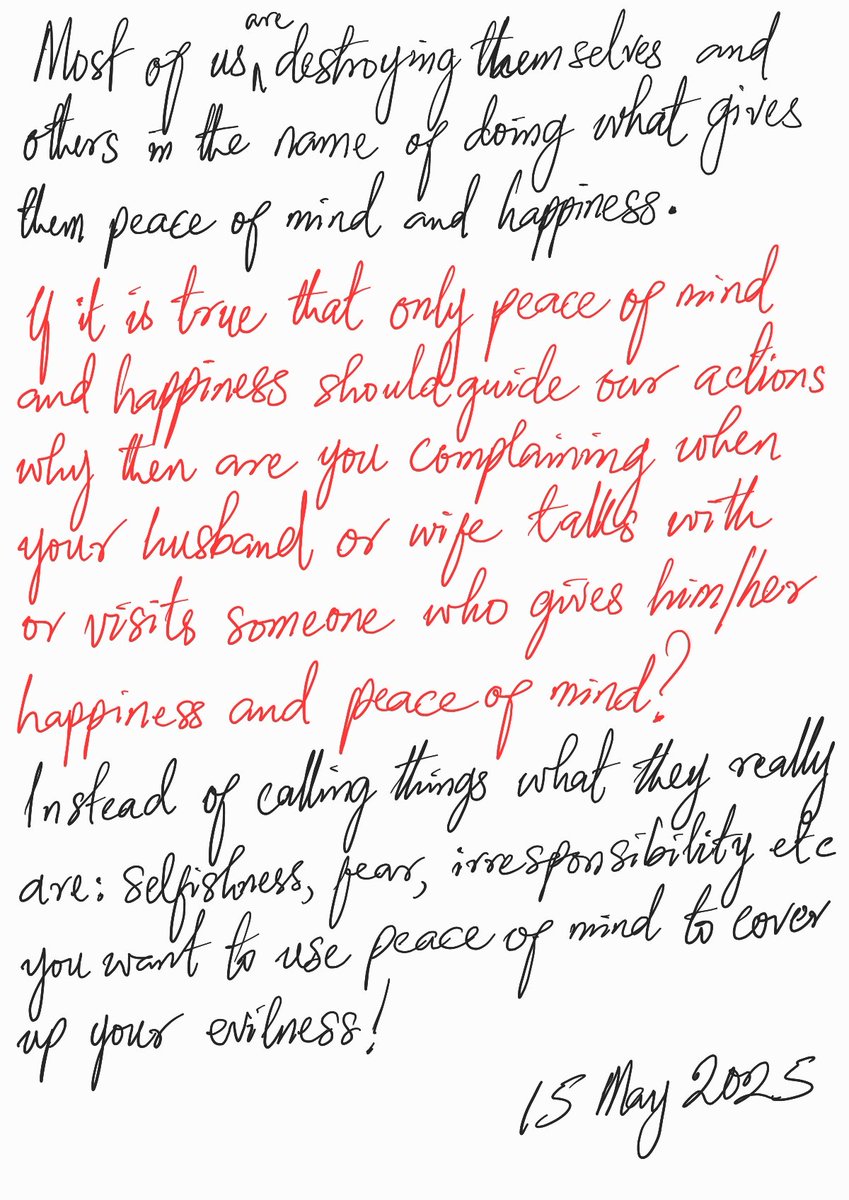 Most of us are destroying themselves and
others in the name of doing what gives
them peace of mind and happiness.
If it is true that only peace of mind
and happiness should guide our actions
why then are you complaining when
your husband or wife talks with
or visits someone who gives him/her
happiness and peace of mind?
Instead of calling things what they really
are: selfishness, fear, irresponsibility etc
you want to use peace of mind to cover
up your evilness!
15 May 2025